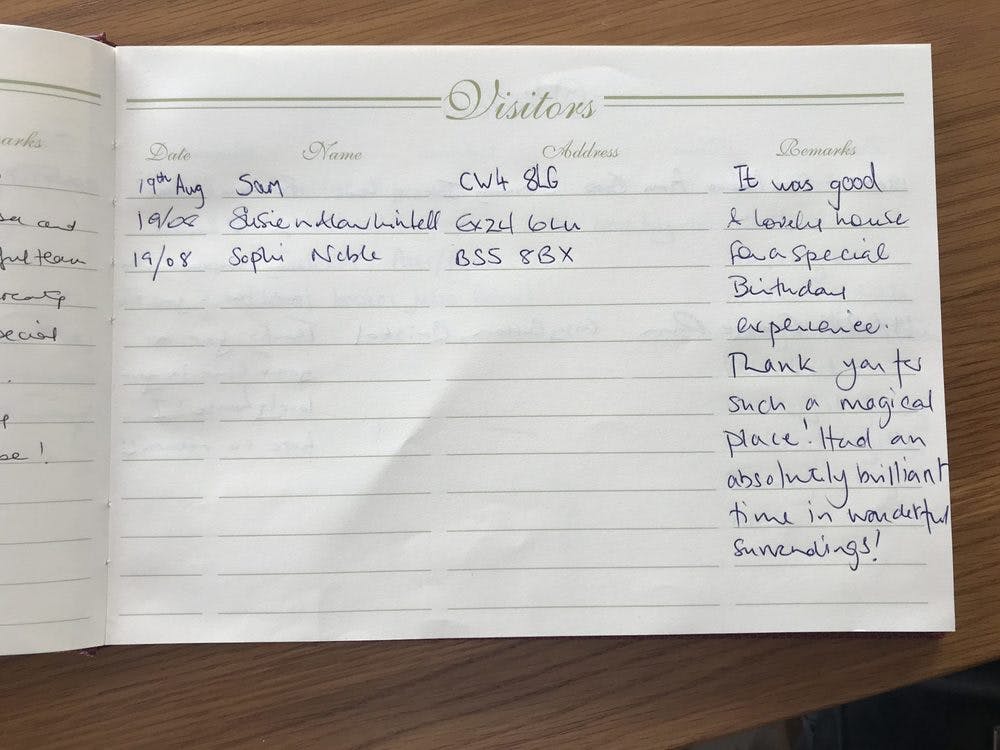 Visitors
arks
Date Name Address Remarks
19th Aug Sam CW4 8LG It was good
and
19/08 Susie Ex24 6LU A lovely house
team
19/08 Sophi Noble BS5 8BX for a special
Birthday
ecial
experience.
Thank you for
such a magical
place! Had an
absolutely brilliant
time in wonderful
surrendings!